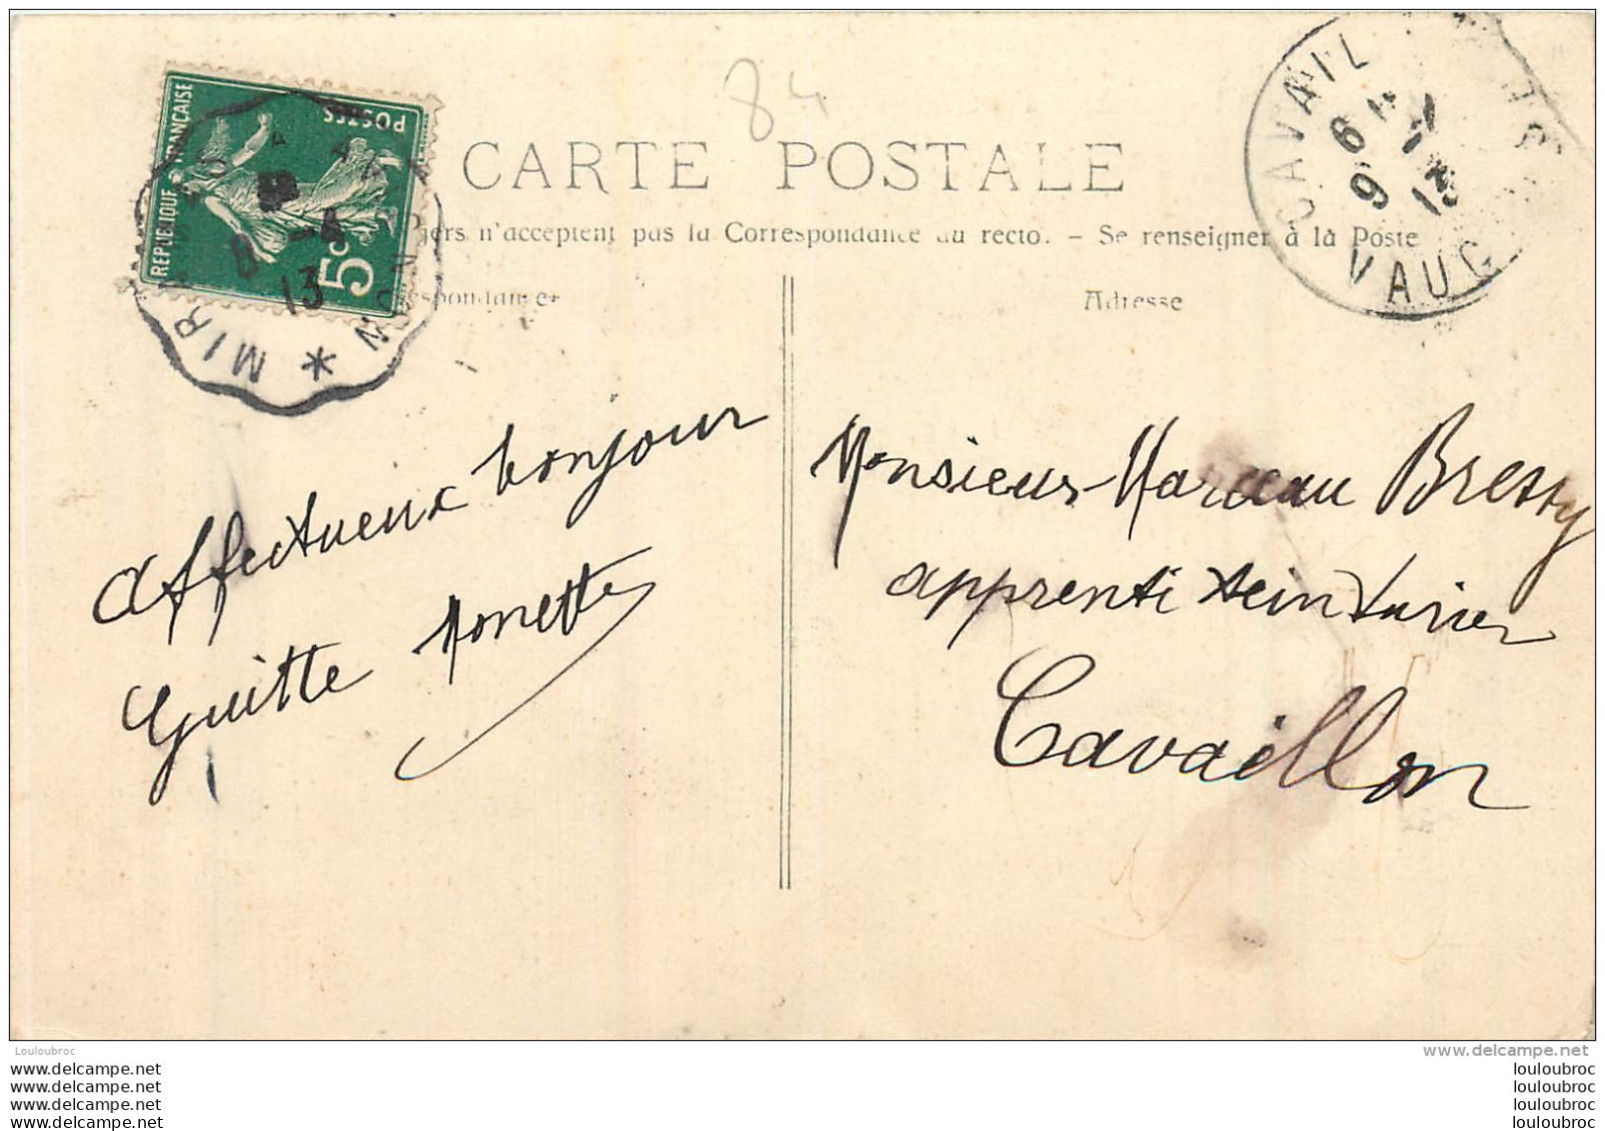 84
CARTE POSTALE
n'acceptent pas la Correspondance au recto. - Se renseigner à la Poste
Adresse
REPUBLIQUE FRANÇAISE
POSTES
5c
8 -4
13
MIR
CAVAIL
VAUC
Affectueux bonjour
Guitte Nonette
Monsieur Marceau Bressy
apprenti teinturier
Cavaillon
Louloubroc
www.delcampe.net
www.delcampe.net
www.delcampe.net
www.delcampe.net
www.delcampe.net
louloubroc
louloubroc
louloubroc
louloubroc